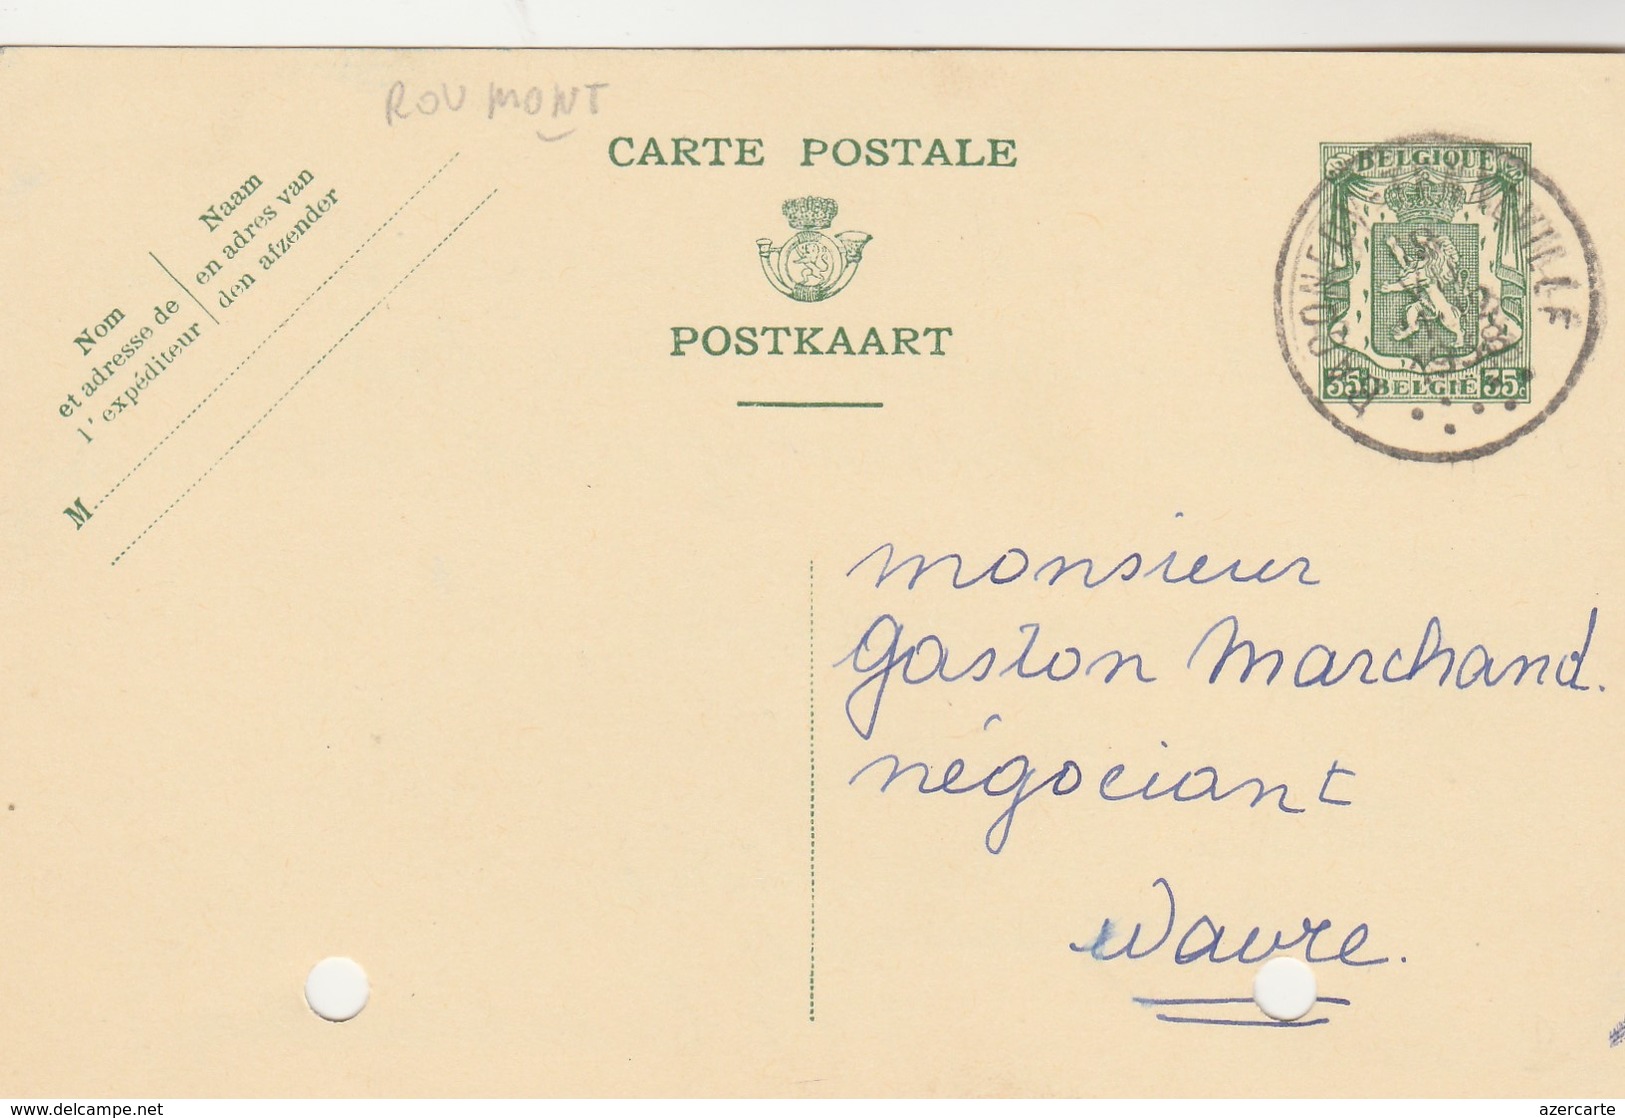 ROUMONT
CARTE POSTALE
POSTKAART
Nom
et adresse de
l'expéditeur
Naam
en adres van
den afzender
M
BELGIQUE
35c BELGIË 35c
monsieur
Gaston Marchand.
négociant
Wavre.
www.delcampe.net
azercarte